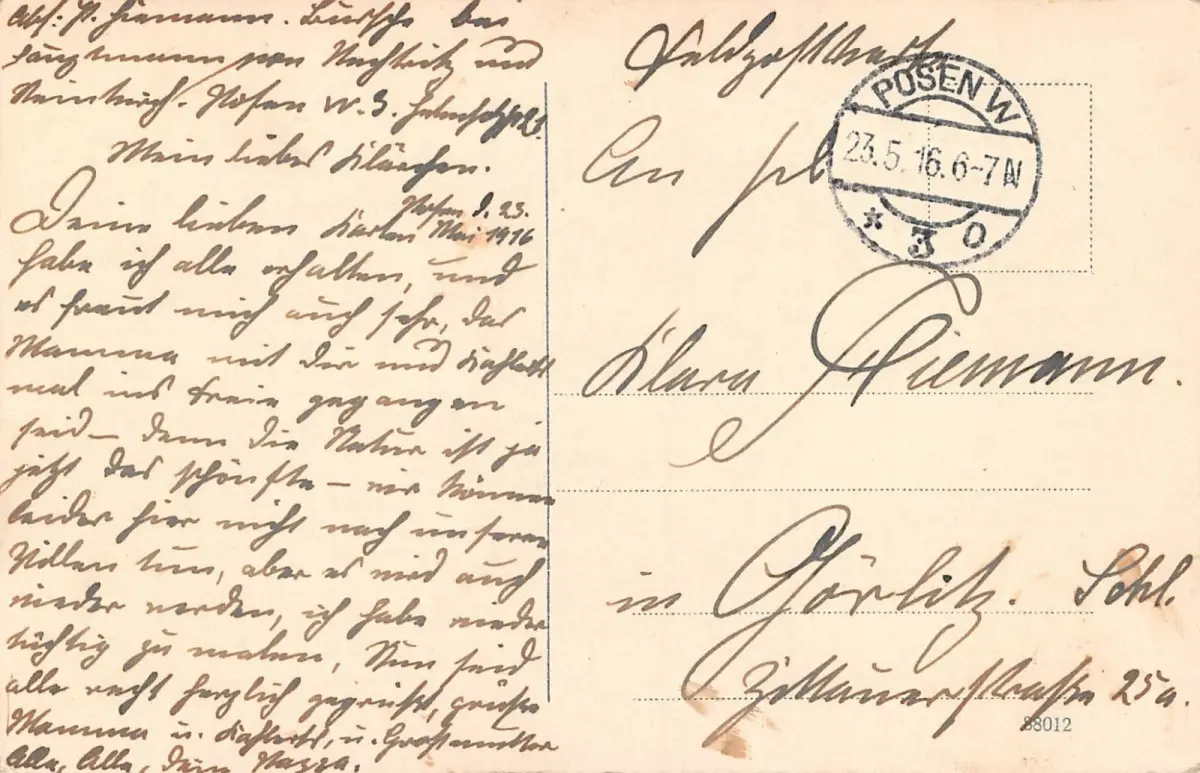 Abs: P. Hiemann. Bursche bei
Hauptmann von Nechtritz und
Steinkirch. Posen W. 3.
Mein liebes Klärchen.
Posen d. 23.
Mai 1916
Deine lieben Karten
habe ich alle erhalten, und
es freut mich auch sehr, das
Mamma mit Dir und Kahlerts
mal ins Freie gegangen
seid – denn die Natur ist ja
jetzt das schönste – wir können
leider hier nicht nach unseren
Willen tun, aber es wird auch
wieder werden, ich habe wieder
tüchtig zu malen, Nun seid
alle recht herzlich gegrüßt, grüße
Mamma u. Kahlerts, u. Großmutter
Alle, Alle, Dein Pappa.
Feldpostkarte
An Frl
Klara Hiemann.
in Görlitz. Schl.
Zittauerstraße 25a.
POSEN W
23.5.16.6-7N
* 3 o
88012